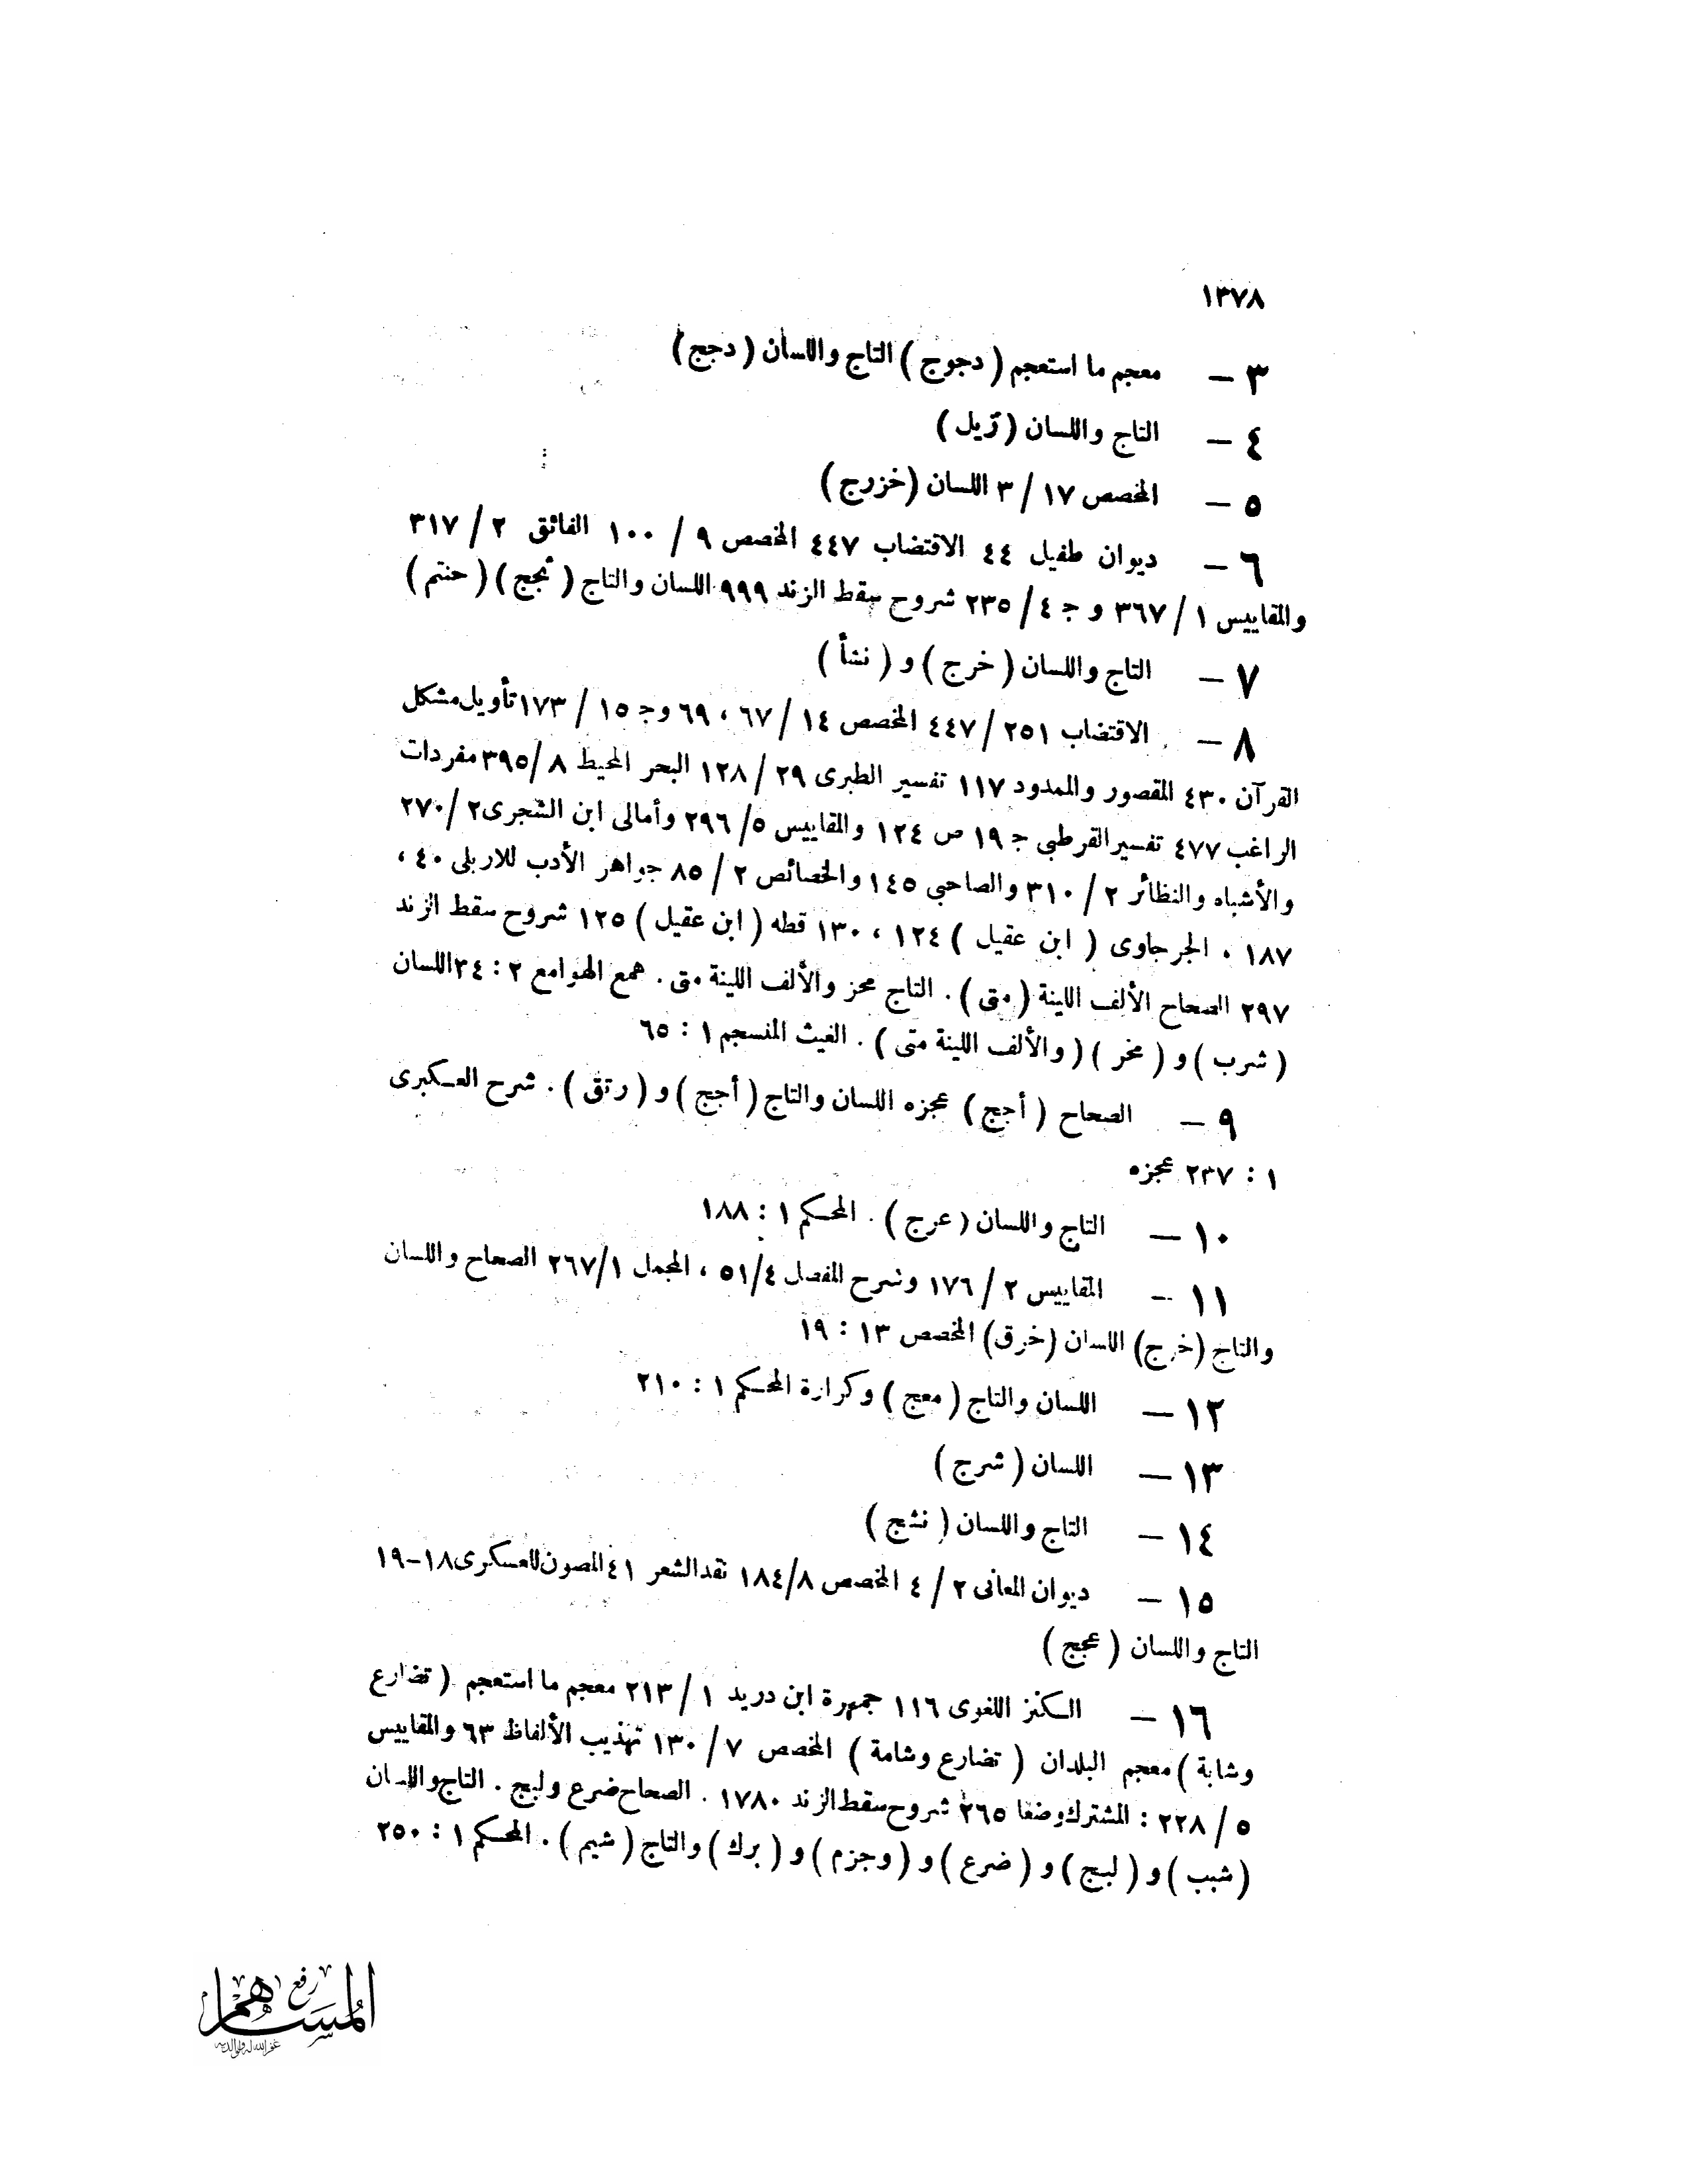 ١٣٧٨
٣ — معجم ما استعجم ( دجوج ) التاج واللسان ( دجج )
٤ — التاج واللسان ( تزيل )
٥ — المخصص ١٧ / ٣ اللسان ( خزرج )
٦ — ديوان طفيل ٤٤ الاقتضاب ٤٤٧ المخصص ٩ / ١٠٠ الفائق ٢ / ٣١٧
والمقاييس ١ / ٣٦٧ و ج ٤ / ٢٣٥ شروح سقط الزند ٩٩٩ اللسان والتاج ( ثجج ) ( حنتم )
٧ — التاج واللسان ( خرج ) و ( نشأ )
٨ — الاقتضاب ٢٥١ / ٤٤٧ المخصص ١٤ / ٦٧ ، ٦٩ وج ١٥ / ١٧٣ تأويل مشكل
القرآن ٤٣٠ المقصور والممدود ١١٧ تفسير الطبرى ٢٩ / ١٢٨ البحر المحيط ٨ /٣٩٥ مفردات
الراغب ٤٧٧ تفسير القرطبى ج ١٩ ص ١٢٤ والمقاييس ٥ /٢٩٦ وأمالى ابن الشجرى ٢ /٢٧٠
والأشباه والنظائر ٢ / ٣١٠ والصاحبى ١٤٥ والخصائص ٢ / ٨٥ جواهر الأدب للاربلى ٤٠ ،
١٨٧ ، الجرجاوى ( ابن عقيل ) ١٢٤ ، ١٣٠ قطه ( ابن عقيل ) ١٢٥ شروح سقط الزند
٢٩٧ الصحاح الألف اللينة ( متى ) . التاج مخر والألف اللينة متى . همع الهوامع ٢ : ٣٤ اللسان
( شرب ) و ( مخر ) ( والألف اللينة متى ) . الغيث المنسجم ١ : ٦٥
٩ — الصحاح ( أجج ) عجزه اللسان والتاج ( أجج ) و ( رتق ) . شرح العكبرى
١ : ٢٣٧ عجزه
١٠ — التاج واللسان ( عرج ) . المحكم ١ : ١٨٨
١١ — المقاييس ٢ / ١٧٦ وشرح المفصل ٤ /٥١ ، المجمل ١ /٢٦٧ الصحاح واللسان
والتاج ( خرج ) اللسان ( خرق ) المخصص ١٣ : ١٩
١٢ — اللسان والتاج ( معج ) وكرارة المحكم ١ : ٢١٠
١٣ — اللسان ( شرج )
١٤ — التاج واللسان ( نشج )
١٥ — ديوان المعانى ٢ / ٤ المخصص ٨ /١٨٤ نقد الشعر ٤١ المصون للعسكرى ١٨-١٩
التاج واللسان ( عجج )
١٦ — الكنز اللغوى ١١٦ جمهرة ابن دريد ١ / ٢١٣ معجم ما استعجم ( تضارع
وشابة ) معجم البلدان ( تضارع وشامة ) المخصص ٧ / ١٣٠ تهذيب الألفاظ ٦٣ والمقاييس
٥ / ٢٢٨ : المشترك وضعا ٢٦٥ شروح سقط الزند ١٧٨٠ . الصحاح ضرع ولبج . التاج واللسان
( شبب ) و ( لبج ) و ( ضرع ) و ( وجزم ) و ( برك ) والتاج ( شيم ) . المحكم ١ : ٢٥٠
رفع
المساهم
غفر الله له ولوالديه